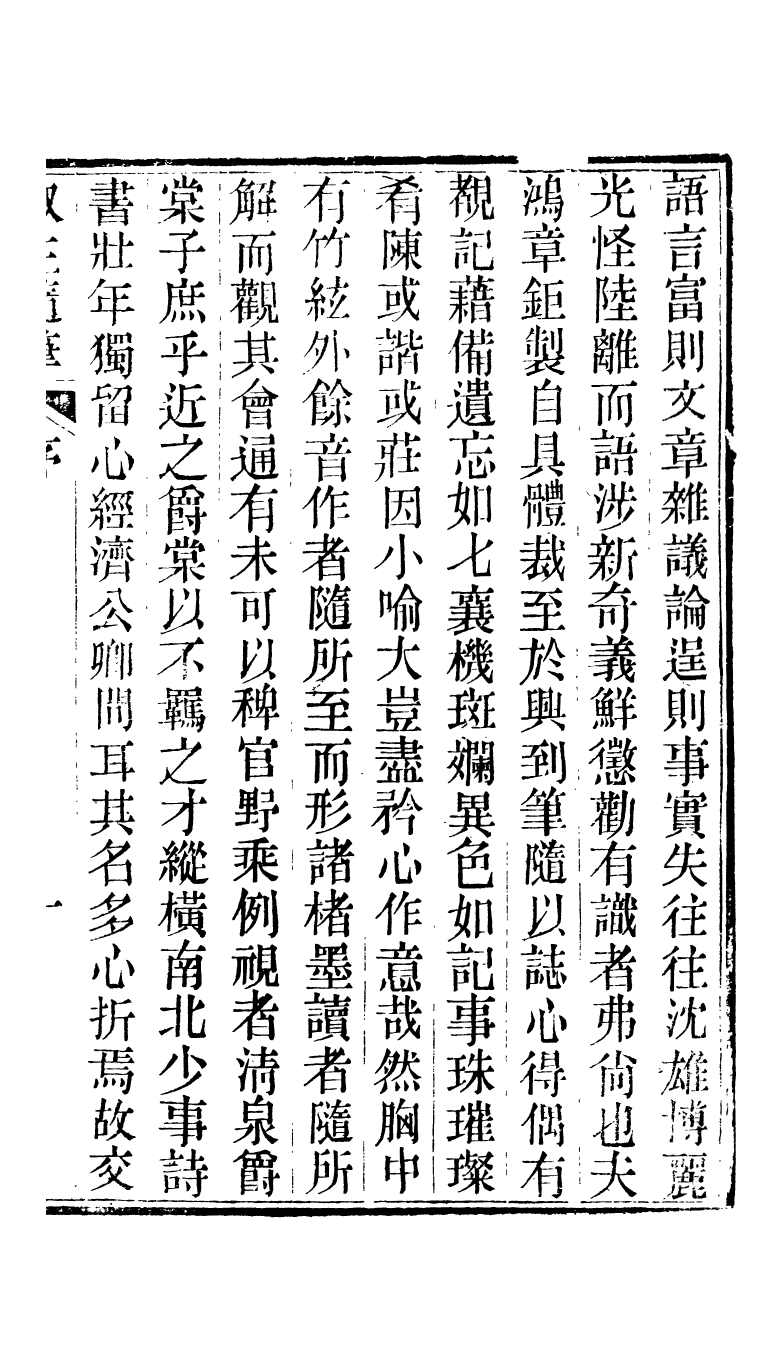 語言富則文章雜議論逞則事實失往往沈雄博麗
光怪陸離而語涉新奇義鮮懲勸有識者弗尙也夫
鴻章鉅製自具體裁至於興到筆隨以誌心得偶有
覩記藉備遺忘如七襄機斑斕異色如記事珠璀璨
肴陳或諧或莊因小喻大豈盡矜心作意哉然胸中
有竹絃外餘音作者隨所至而形諸楮墨讀者隨所
解而觀其會通有未可以稗官野乘例視者淸泉爵
棠子庶乎近之爵棠以不羈之才縱橫南北少事詩
書壯年獨留心經濟公卿問耳其名多心折焉故交
隨筆 序 一